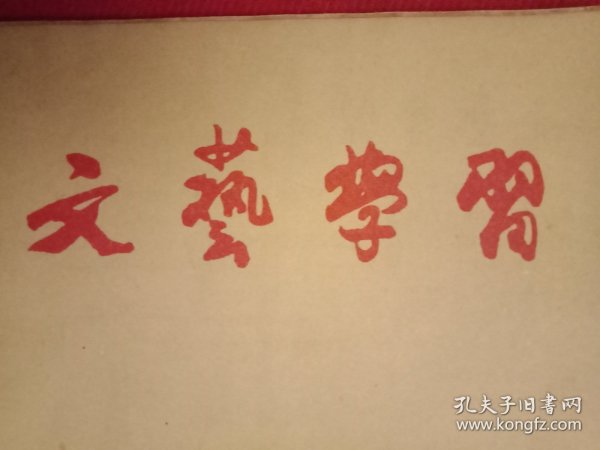 文藝學習
孔夫子旧書网
www.kongfz.com